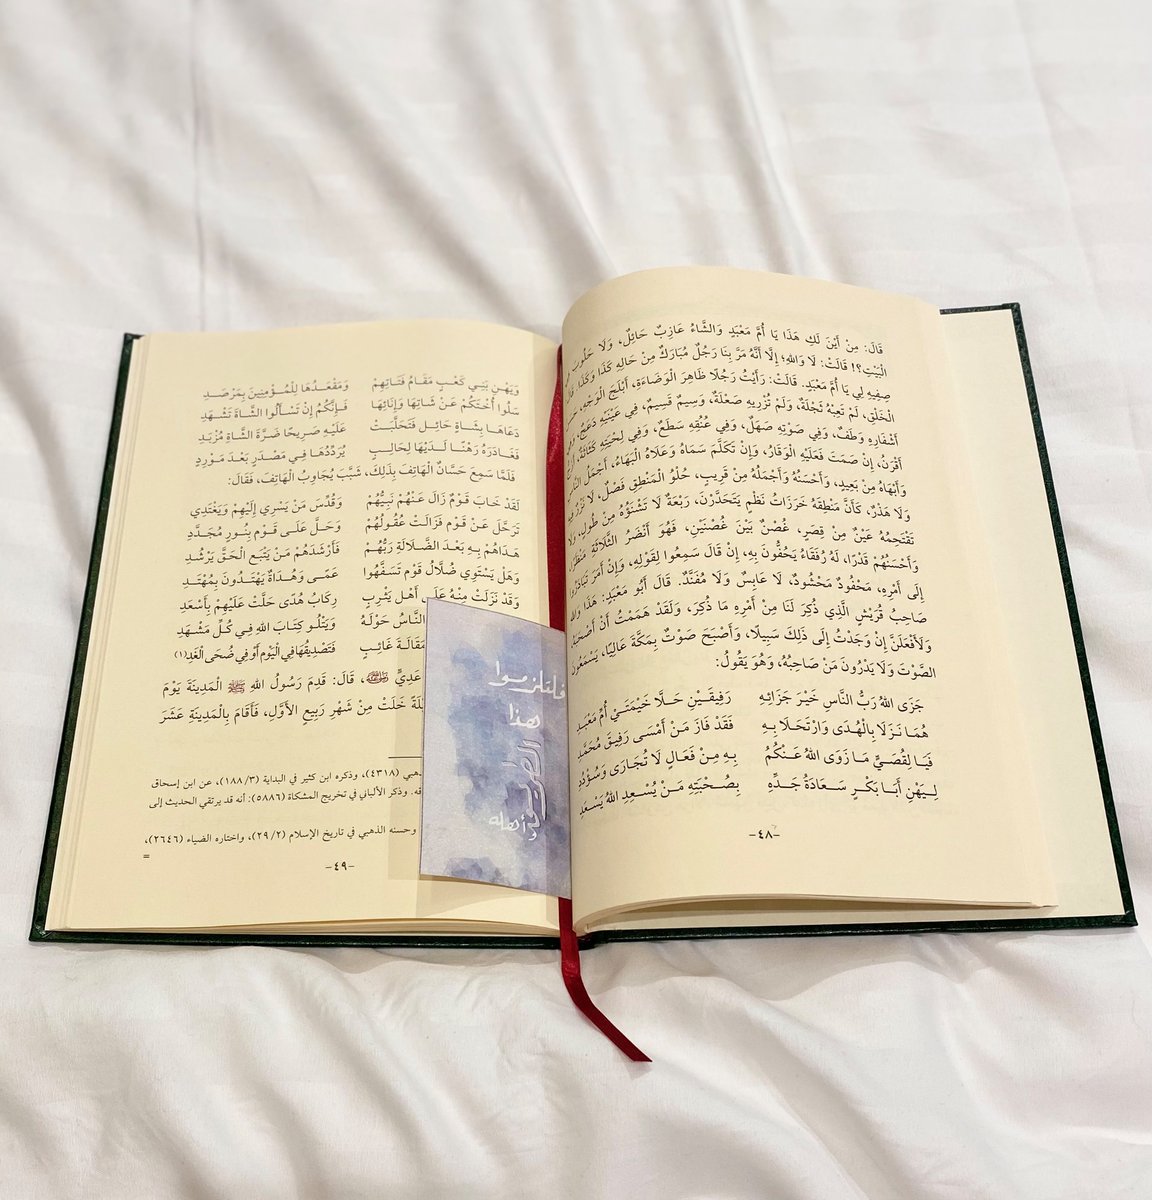 قَالَ: مِنْ أَيْنَ لَكِ هَذَا يَا أُمَّ مَعْبَدٍ وَالشَّاءُ عَازِبٌ حَائِلٌ، وَلَا حَلُوبَ
الْبَيْتِ؟! قَالَتْ: لَا وَاللهِ؛ إِلَّا أَنَّهُ مَرَّ بِنَا رَجُلٌ مُبَارَكٌ مِنْ حَالِهِ كَذَا وَكَذَا قَالَ
صِفِيهِ لِي يَا أُمَّ مَعْبَدٍ. قَالَتْ: رَأَيْتُ رَجُلًا ظَاهِرَ الْوَضَاءَةِ، أَبْلَجَ الْوَجْهِ،
الْخَلْقِ، لَمْ تَعِبْهُ ثَجْلَةٌ، وَلَمْ تُزْرِيهِ صَعْلَةٌ، وَسِيمٌ قَسِيمٌ، فِي عَيْنَيْهِ دَعَجٌ،
أَشْفَارِهِ وَطَفٌ، وَفِي صَوْتِهِ صَهَلٌ، وَفِي عُنُقِهِ سَطَعٌ، وَفِي لِحْيَتِهِ كَثَاثَةٌ،
أَقْرَنُ، إِنْ صَمَتَ فَعَلَيْهِ الْوَقَارُ، وَإِنْ تَكَلَّمَ سَمَاهُ وَعَلَاهُ الْبَهَاءُ، أَجْمَلُ النَّاسِ
وَأَبْهَاهُ مِنْ بَعِيدٍ، وَأَحْسَنُهُ وَأَجْمَلُهُ مِنْ قَرِيبٍ، حُلْوُ الْمَنْطِقِ فَصْلٌ، لَا نَزْرٌ فِيهِ
وَلَا هَذْرٌ، كَأَنَّ مَنْطِقَهُ خَرَزَاتُ نَظْمٍ يَتَحَدَّرْنَ، رَبْعَةٌ لَا تَشْنَؤُهُ مِنْ طُولٍ، وَلَا
تَقْتَحِمُهُ عَيْنٌ مِنْ قِصَرٍ، غُصْنٌ بَيْنَ غُصْنَيْنِ، فَهُوَ أَنْضَرُ الثَّلَاثَةِ مَنْظَرًا،
وَأَحْسَنُهُمْ قَدْرًا، لَهُ رُفَقَاءُ يَحُفُّونَ بِهِ، إِنْ قَالَ سَمِعُوا لِقَوْلِهِ، وَإِنْ أَمَرَ تَبَادَرُوا
إِلَى أَمْرِهِ، مَحْفُودٌ مَحْشُودٌ، لَا عَابِسٌ وَلَا مُفَنَّدٌ. قَالَ أَبُو مَعْبَدٍ: هَذَا وَاللهِ
صَاحِبُ قُرَيْشٍ الَّذِي ذُكِرَ لَنَا مِنْ أَمْرِهِ مَا ذُكِرَ، وَلَقَدْ هَمَمْتُ أَنْ أَصْحَبَهُ،
وَلَأَفْعَلَنَّ إِنْ وَجَدْتُ إِلَى ذَلِكَ سَبِيلًا، وَأَصْبَحَ صَوْتٌ بِمَكَّةَ عَالِيًا، يَسْمَعُونَ
الصَّوْتَ وَلَا يَدْرُونَ مَنْ صَاحِبُهُ، وَهُوَ يَقُولُ:
جَزَى اللهُ رَبُّ النَّاسِ خَيْرَ جَزَائِهِ رَفِيقَيْنِ حَلَّا خَيْمَتَيْ أُمِّ مَعْبَدِ
هُمَا نَزَلَا بِالْهُدَى وَارْتَحَلَا بِهِ فَقَدْ فَازَ مَنْ أَمْسَى رَفِيقَ مُحَمَّدِ
فَيَا لَقُصَيٍّ مَا زَوَى اللهُ عَنْكُمُ بِهِ مِنْ فَعَالٍ لَا تُجَارَى وَسُؤْدُدِ
لِيَهْنِ أَبَا بَكْرٍ سَعَادَةُ جَدِّهِ بِصُحْبَتِهِ مَنْ يُسْعِدِ اللهُ يَسْعَدِ
-٤٨-
وَيَهْنِ بَنِي كَعْبٍ مَقَامُ فَتَاتِهِمْ وَمَقْعَدُهَا لِلْمُؤْمِنِينَ بِمَرْصَدِ
سَلُوا أُخْتَكُمْ عَنْ شَاتِهَا وَإِنَائِهَا فَإِنَّكُمُ إِنْ تَسْأَلُوا الشَّاةَ تَشْهَدِ
دَعَاهَا بِشَاةٍ حَائِلٍ فَتَحَلَّبَتْ عَلَيْهِ صَرِيحًا ضَرَّةُ الشَّاةِ مُزْبِدِ
فَغَادَرَهُ رَهْنًا لَدَيْهَا لِحَالِبٍ يُرَدِّدُهَا فِي مَصْدَرٍ بَعْدَ مَوْرِدِ
فَلَمَّا سَمِعَ حَسَّانُ الْهَاتِفَ بِذَلِكَ، شَبَّبَ يُجَاوِبُ الْهَاتِفَ، فَقَالَ:
لَقَدْ خَابَ قَوْمٌ زَالَ عَنْهُمْ نَبِيُّهُمْ وَقُدِّسَ مَنْ يَسْرِي إِلَيْهِمْ وَيَغْتَدِي
تَرَحَّلَ عَنْ قَوْمٍ فَزَالَتْ عُقُولُهُمْ وَحَلَّ عَلَى قَوْمٍ بِنُورٍ مُجَدَّدِ
هَدَاهُمْ بِهِ بَعْدَ الضَّلَالَةِ رَبُّهُمْ فَأَرْشَدَهُمْ مَنْ يَتْبَعِ الْحَقَّ يَرْشُدِ
وَهَلْ يَسْتَوِي ضُلَّالُ قَوْمٍ تَسَفَّهُوا عَمًى وَهُدَاةٌ يَهْتَدُونَ بِمُهْتَدِ
وَقَدْ نَزَلَتْ مِنْهُ عَلَى أَهْلِ يَثْرِبٍ رِكَابُ هُدًى حَلَّتْ عَلَيْهِمْ بِأَسْعَدِ
النَّاسُ حَوْلَهُ وَيَتْلُو كِتَابَ اللهِ فِي كُلِّ مَشْهَدِ
مَقَالَةَ غَائِبٍ فَتَصْدِيقُهَا فِي الْيَوْمِ أَوْ فِي ضُحَى الْغَدِ(١)
عَدِيٍّ ﵁، قَالَ: قَدِمَ رَسُولُ اللهِ ﷺ الْمَدِينَةَ يَوْمَ
لَيْلَةً خَلَتْ مِنْ شَهْرِ رَبِيعِ الْأَوَّلِ، فَأَقَامَ بِالْمَدِينَةِ عَشْرَ
(٤٣١٨)، وذكره ابن كثير في البداية (٣/ ١٨٨)، عن ابن إسحاق
وذكر الألباني في تخريج المشكاة (٥٨٨٦): أنه قد يرتقي الحديث إلى
وحسنه الذهبي في تاريخ الإسلام (٢/ ٢٩)، واختاره الضياء (٢٦٤٦)،
=
-٤٩-
فلتلزموا
هذا
الطريق
وأهله